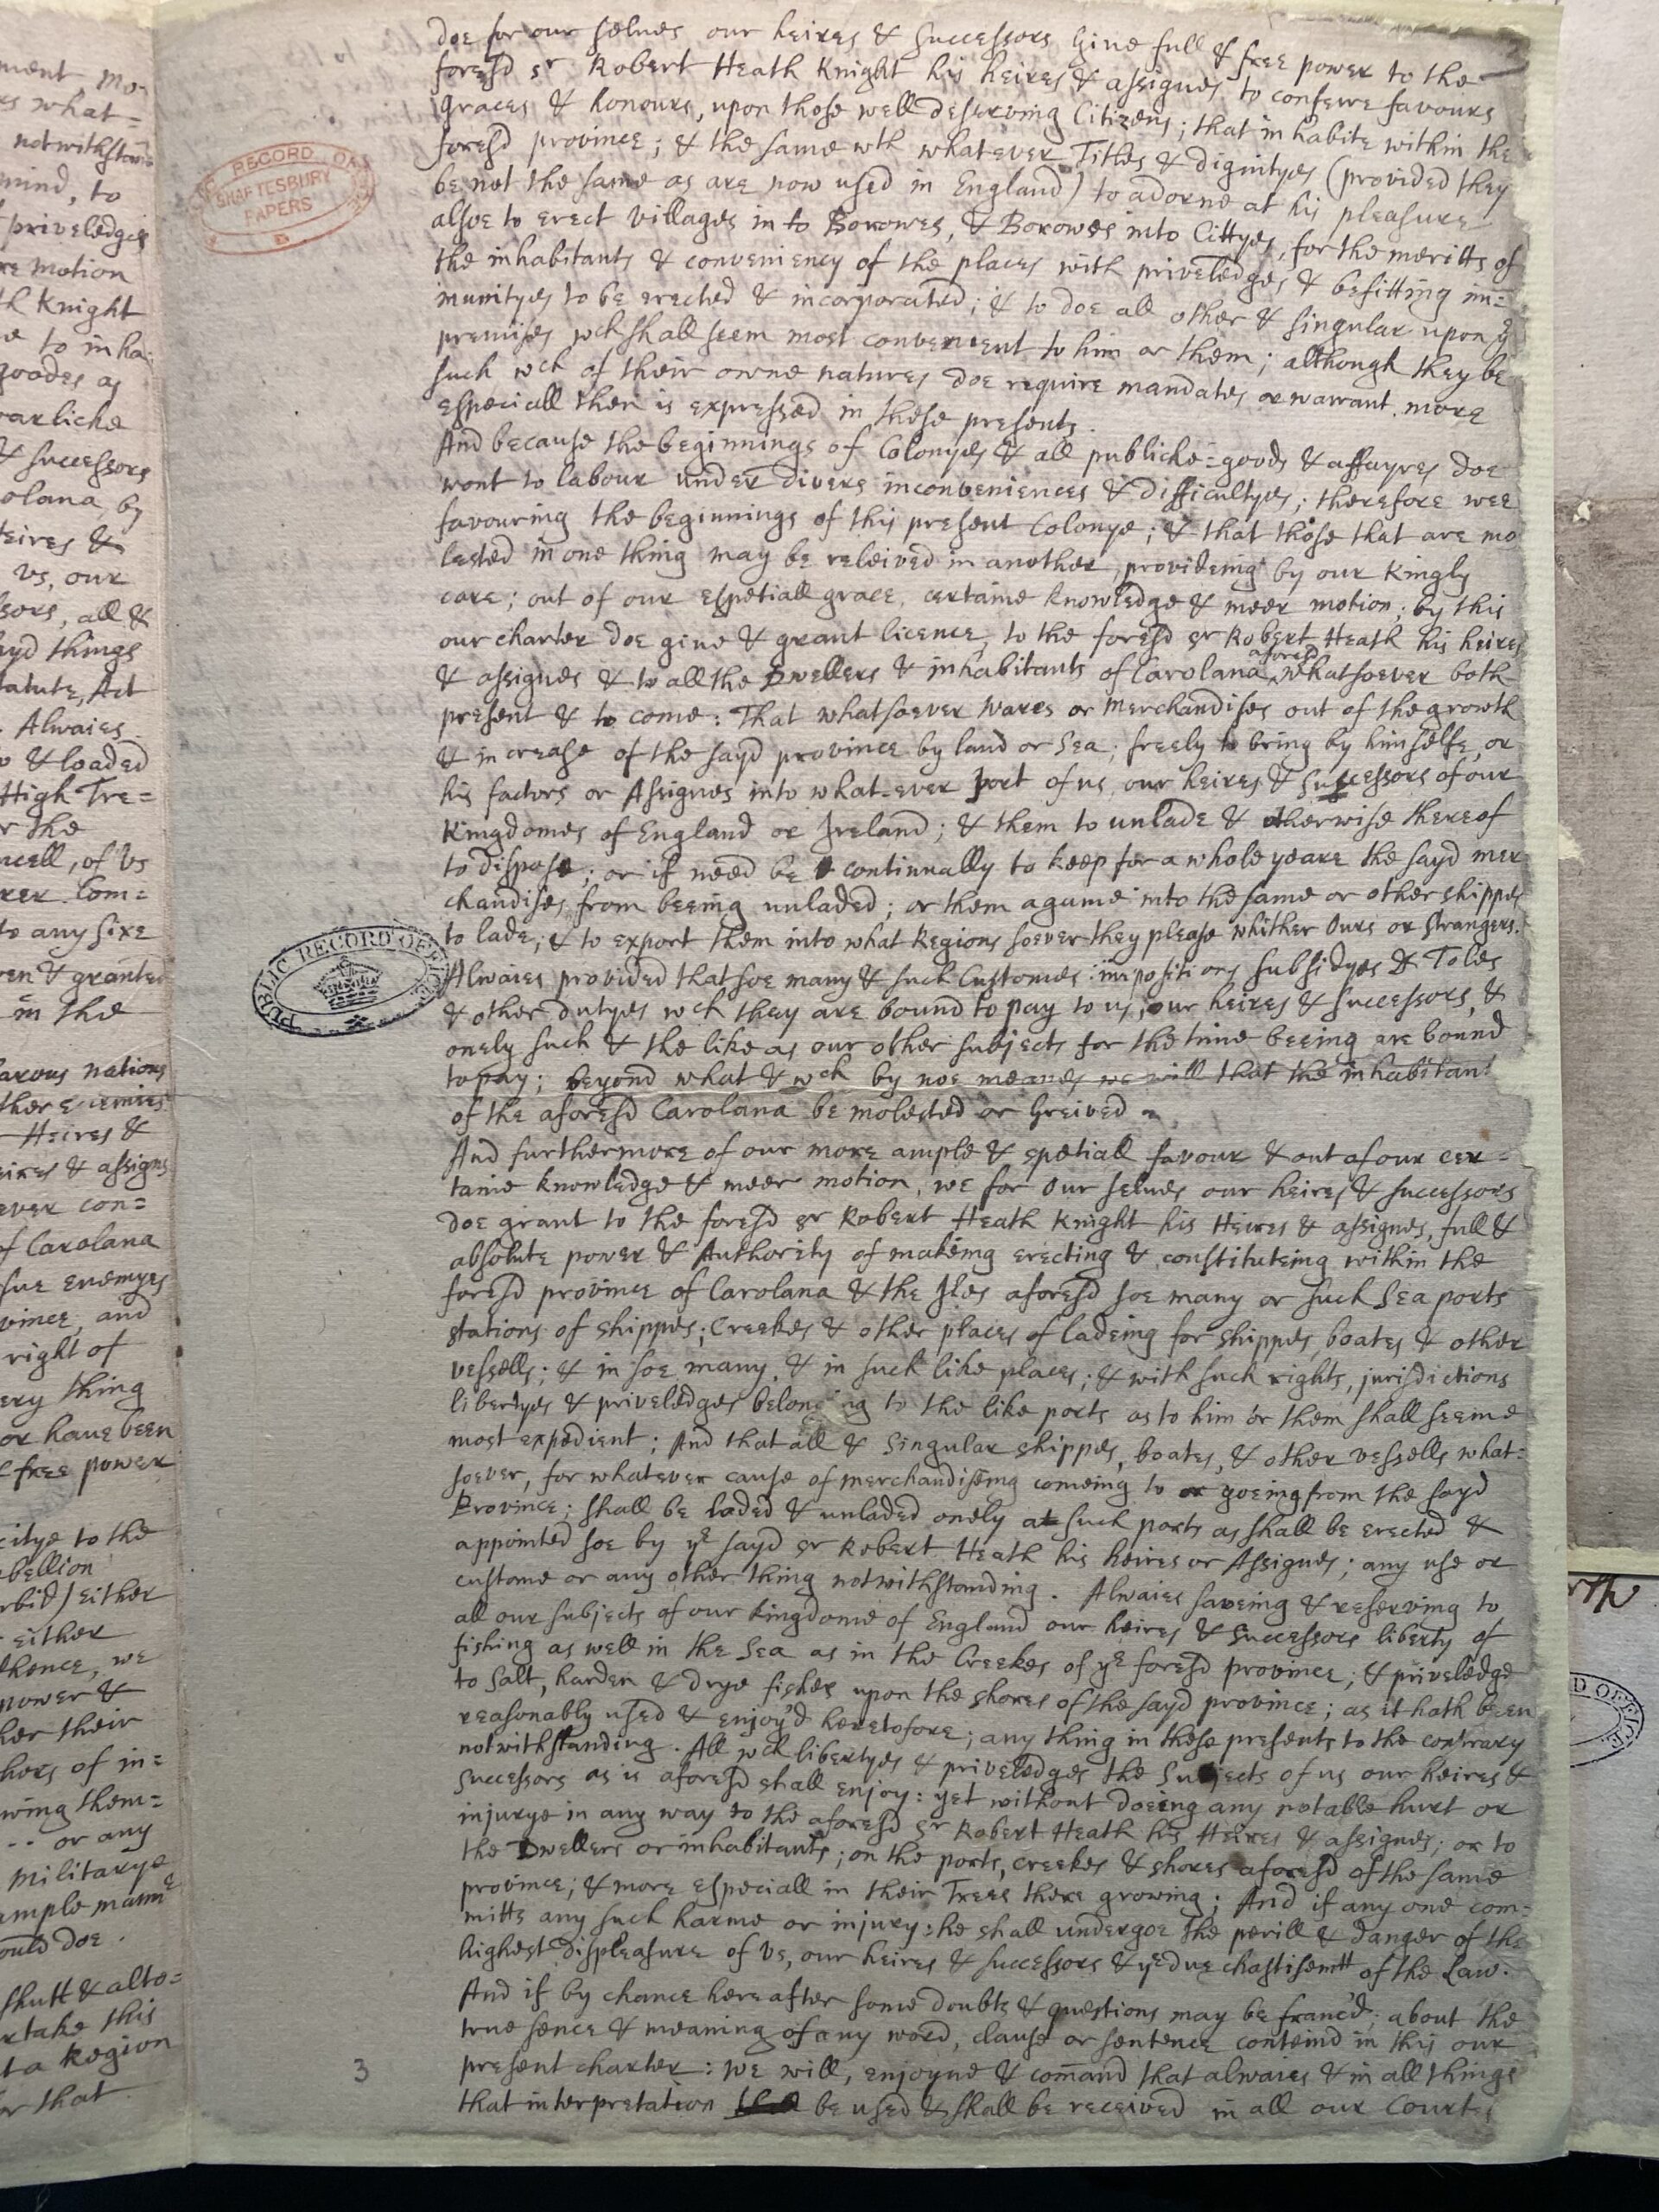 doe for our selves our heires & successors Give full & free power to the
foresd sr Robert Heath Knight his heires & assignes to conferre favours
graces & honours, upon those well deserving Citizens; that inhabite within the
foresd province; & the same wth whatever Titles & dignityes (provided they
be not the same as are now used in England) to adorne at his pleasure
alsoe to erect villages in to Borowes, & Borowes into Cittyes, for the meritts of
the inhabitants & conveniency of the places with priveledges & befitting im=
munityes to be erected & incorporated; & to doe all other & singular upon ye
premises wch shall seem most convenient to him or them; although they be
such wch of their owne natures doe require mandates or warrant more
especiall then is expressed in these presents.
And because the beginnings of Colonyes & all publicke=goods & affayres doe
wont to labour under divers inconveniences & difficultyes; therefore wee
favouring the beginnings of this present Colonye; & that those that are mo
lested in one thing may be releived in another, provideing by our Kingly
care; out of our espetiall grace, certaine knowledge & meer motion; by this
our charter doe give & grant licence, to the foresd sr Robert Heath his heires
& assignes & to all the Dwellers & inhabitants of Carolana aforesd whatsoever both
present & to come: That whatsoever wares or merchandises out of the growth
& increase of the sayd province by land or Sea; freely to bring by himselfe, or
his factors or Assignes into what-ever port of us, our heires & Successors of our
Kingdomes of England or Ireland; & them to unlade & otherwise thereof
to dispose; or if need be continually to keep for a whole yeare the sayd mer
chandises from beeing unladed; or them againe into the same or other shippes
to lade, & to export them into what Regions soever they please whither Ours or Strangers.
PUBLIC RECORD OFFICE
Alwaies provided that soe many & such Customes impositions subsidyes & Toles
& other dutyes wch they are bound to pay to us, our heires & successors, &
onely such & the like as our other subjects for the time beeing are bound
to pay; beyond what & wch by noe meanes we will that the inhabitant
of the aforesd Carolana be molested or Greived
And furthermore of our more ample & spetiall favour & out of our cer=
taine knowledge & meer motion, we for Our selves our heires & successors
doe grant to the foresd sr Robert Heath Knight his Heires & assignes, full &
absolute power & Authority of makeing erecting & constituteing within the
foresd province of Carolana & the Iles aforesd soe many or such Sea ports
stations of shippes; Creekes & other places of ladeing for shippes, boates & other
vessells; & in soe many, & in such like places; & with such rights, jurisdictions
libertyes & priveledges belonging to the like ports as to him or them shall seeme
most expedient; And that all & singular shippes, boates, & other vessells what=
soever, for whatever cause of merchandiseing comeing to or goeing from the sayd
Province; shall be laded & unladed onely at such ports as shall be erected &
appointed soe by ye sayd sr Robert Heath his heires or Assignes; any use or
custome or any other thing notwithstanding. Alwaies saveing & reserving to
all our subjects of our kingdome of England our heires & Successors liberty of
fishing as well in the Sea as in the Creekes of ye foresd province; & priveledge
to Salt, harden & drye fishes upon the shores of the sayd province; as it hath been
reasonably used & enjoy'd heretofore; any thing in these presents to the contrary
notwithstanding. All wch libertyes & priveledges the Subjects of us our heires &
Successors as is aforesd shall enjoy: yet without doeing any notable hurt or
injurye in any way to the aforesd sr Robert Heath his Heires & assignes; or to
the Dwellers or inhabitants; on the ports, creekes & shores aforesd of the same
province; & more especiall in their Trees there growing; And if any one com=
mitts any such harme or injury: he shall undergoe the perill & danger of the
highest displeasure of Vs, our heires & successors & ye due chastisemtt of the Law.
And if by chance hereafter some doubts & questions may be franc'd; about the
true sence & meaning of any word, clause or sentence conteind in this our
present charter: we will, enjoyne & comand that alwaies & in all things
that interpretation be used & shall be received in all our Courts
3
RECORD
SHAFTESBURY
PAPERS
ment mo-
rs what=
notwithstan
mind, to
priveledges
re motion
th Knight
e to inha
goodes as
& successors
olana, by
heires &
vs, our
ssors, all &
ayd things
tatute, Act
Alwaies
& loaded
High Tre=
r the
ncell, of Vs
Com=
to any sixe
ven & granted
in the
arous nations
Heires &
eires & assigns
ever con=
of Carolana
sue enemyes
vince, and
right of
ery thing
or have been
free power
citye to the
bellion
rbid) either
either
thence, we
power &
her their
hers of in=
wing them=
or any
militarye
ample mannr
ould doe.
shutt & alto=
rtake this
t a Region
or that